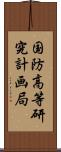 国防高等研
究計画局